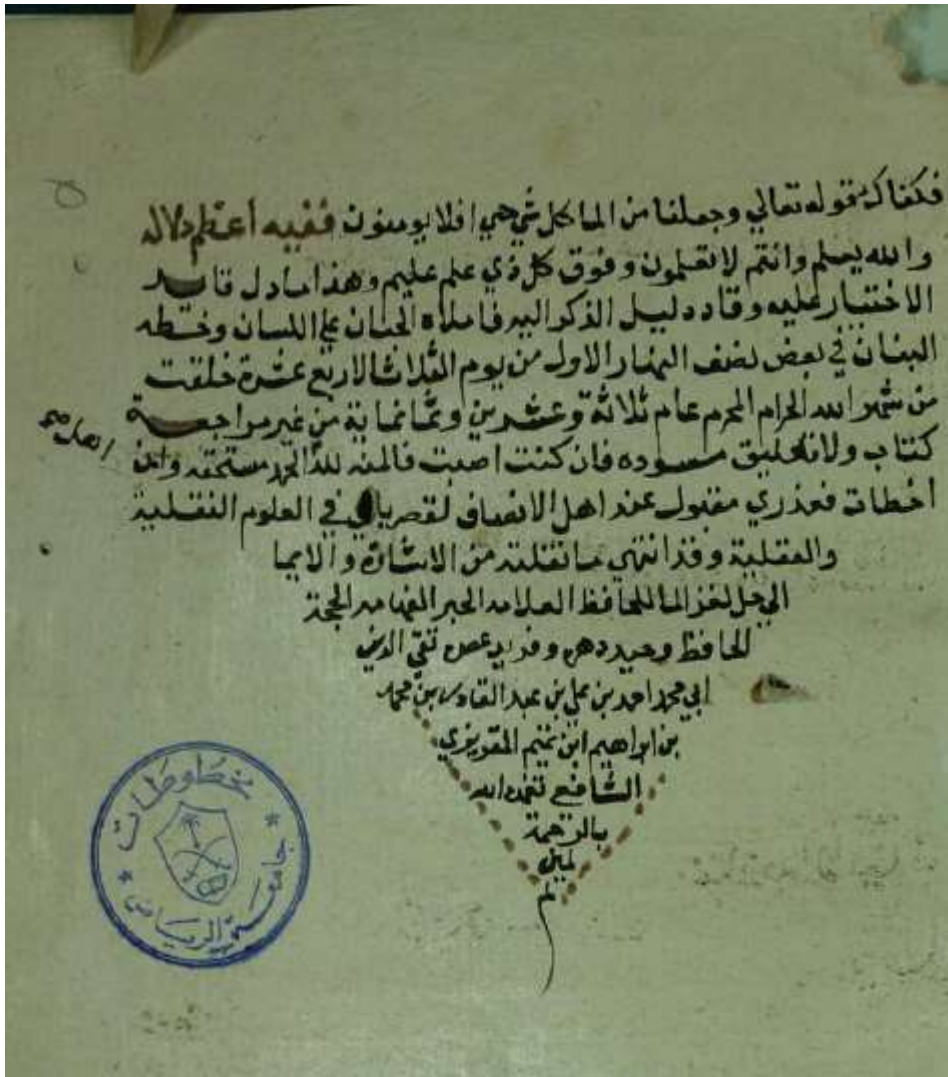 فكفاك بقوله تعالي وجعلنا من الما كل شي حي افلا يومنون ففيه أعظم دلاله
والله يعلم وانتم لا تعلمون وفوق كل ذي علم عليم وهذا ما دل قايد
الاختبار عليه وقاد دليل الذكر اليه فاملاه الجنان علي اللسان وخطه
البنان في بعض نصف النهار الاول من يوم الثلاثا لاربع عشرة خلقت
من شهر الله الحرام المحرم عام ثلاثة وعشرين وثمانماية من غير مراجعة
كتاب ولا تعليق مسوده فان كنت اصبت فالمنه لله الحمد مستحقه وان
أخطات فعذري مقبول عند اهل الانصاف لقصر باعي في العلوم النقلية
والعقلية وقد انتهي ما نقلته من الاشارة والايما
الي حل لغز الما للحافظ العلامه الحبر الفهامه الحجة
الحافظ وحيد دهره وفريد عصره تقي الدين
ابي محمد احمد بن علي بن عبد القادر بن محمد
بن ابراهيم ابن تميم المقريزي
الشافعي تغمده الله
بالرحمة
امين
تم
مخطوطات
جامعة الرياض